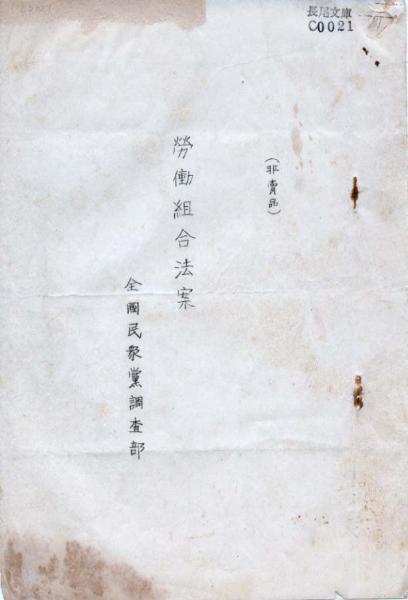 長尾文庫
C0021
(非賣品)
勞働組合法案
全國民衆黨調査部